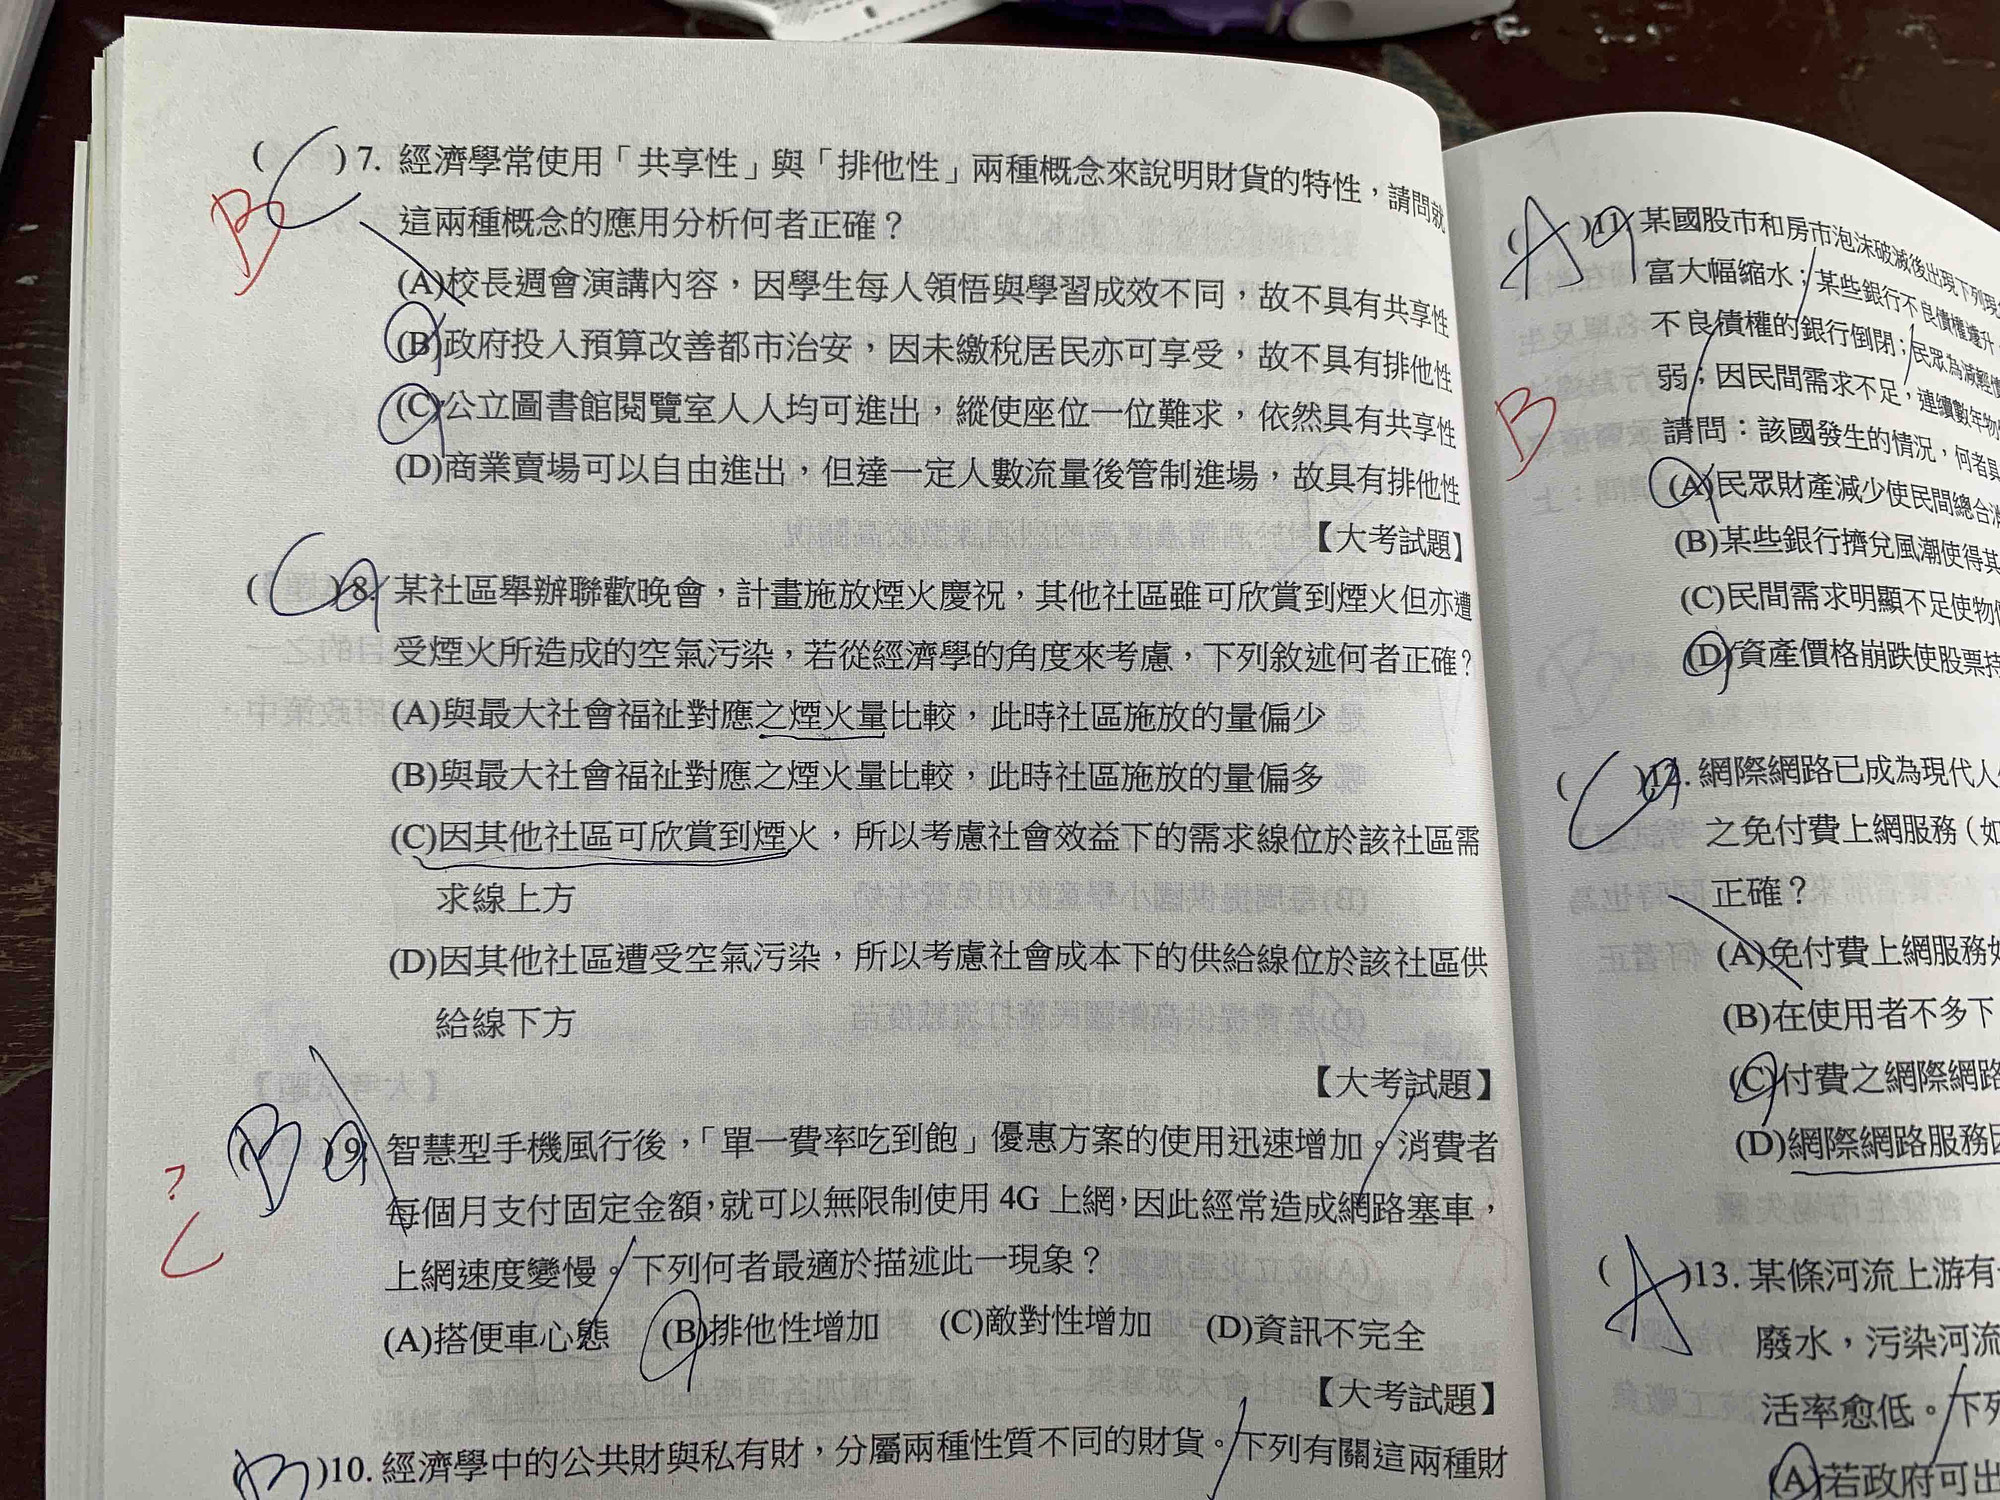 ( C )7. 經濟學常使用「共享性」與「排他性」兩種概念來說明財貨的特性，請問就
B
這兩種概念的應用分析何者正確？
(A)校長週會演講內容，因學生每人領悟與學習成效不同，故不具有共享性
(B)政府投入預算改善都市治安，因未繳稅居民亦可享受，故不具有排他性
(C)公立圖書館閱覽室人人均可進出，縱使座位一位難求，依然具有共享性
(D)商業賣場可以自由進出，但達一定人數流量後管制進場，故具有排他性
【大考試題】
( C )8. 某社區舉辦聯歡晚會，計畫施放煙火慶祝，其他社區雖可欣賞到煙火但亦遭
受煙火所造成的空氣污染，若從經濟學的角度來考慮，下列敘述何者正確？
(A)與最大社會福祉對應之煙火量比較，此時社區施放的量偏少
(B)與最大社會福祉對應之煙火量比較，此時社區施放的量偏多
(C)因其他社區可欣賞到煙火，所以考慮社會效益下的需求線位於該社區需
求線上方
(D)因其他社區遭受空氣污染，所以考慮社會成本下的供給線位於該社區供
給線下方
【大考試題】
( B )9. 智慧型手機風行後，「單一費率吃到飽」優惠方案的使用迅速增加。消費者
?
C
每個月支付固定金額，就可以無限制使用 4G 上網，因此經常造成網路塞車，
上網速度變慢。下列何者最適於描述此一現象？
(A)搭便車心態 (B)排他性增加 (C)敵對性增加 (D)資訊不完全
【大考試題】
( B )10. 經濟學中的公共財與私有財，分屬兩種性質不同的財貨。下列有關這兩種財
( A )11. 某國股市和房市泡沫破滅後出現下列現
富大幅縮水；某些銀行不良債權遽升，
不良債權的銀行倒閉；民眾為減輕債
弱；因民間需求不足，連續數年物
B
請問：該國發生的情況，何者
(A)民眾財產減少使民間總合
(B)某些銀行擠兌風潮使得其
(C)民間需求明顯不足使物
(D)資產價格崩跌使股票持
( C )12. 網際網路已成為現代人
之免付費上網服務（如
正確？
(A)免付費上網服務
(B)在使用者不多下
(C)付費之網際網路
(D)網際網路服務因
( A )13. 某條河流上游有
廢水，污染河流
活率愈低。下列
(A)若政府可出